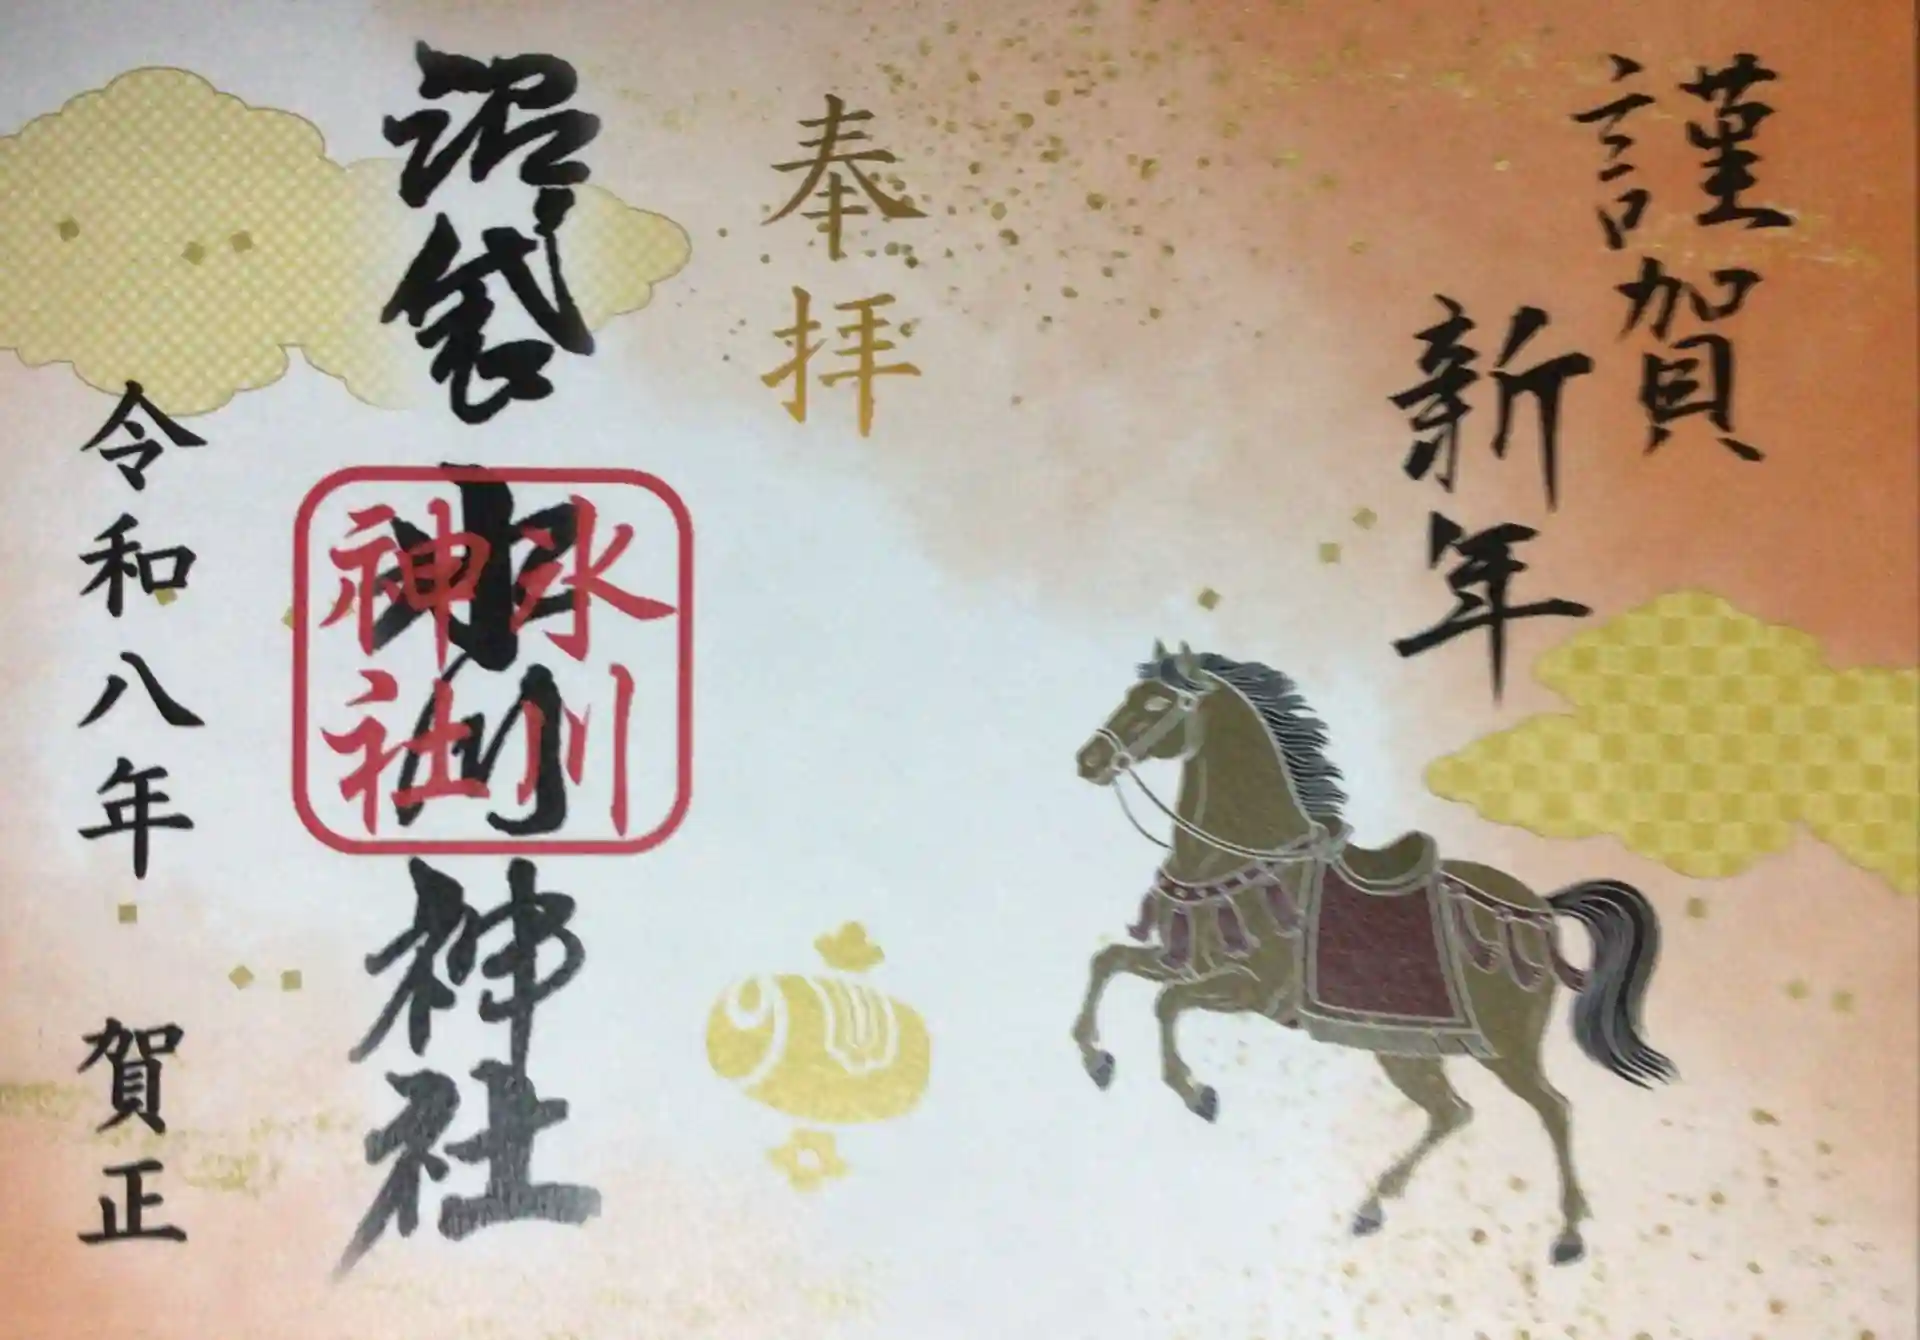 謹賀
新年
奉拝
沼袋氷川神社
氷川
神社
令和八年 賀正